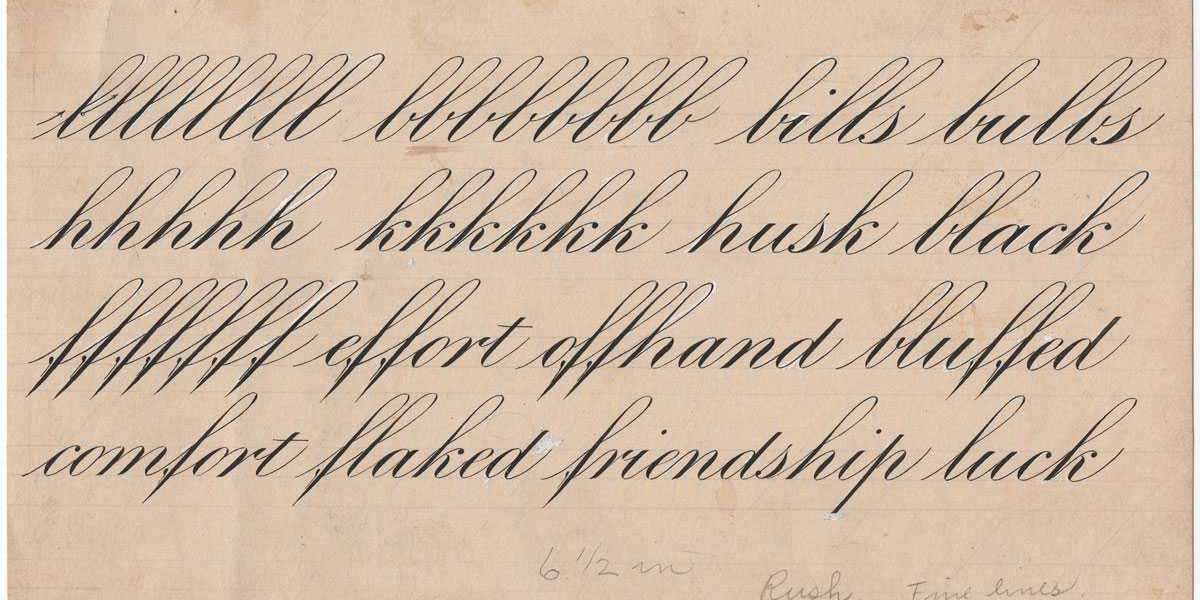 lllllllll bbbbbbbb bills bulbs
hhhhh kkkkkkk husk black
ffffffff effort offhand bluffed
comfort flaked friendship luck
6 1/2 in
Rush Fine lines.